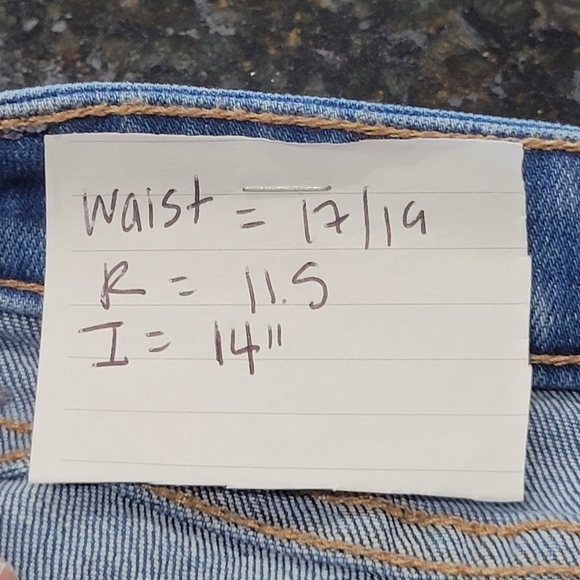 Waist = 17/19
R = 11.5
I = 14"